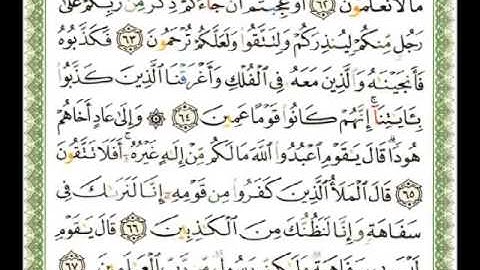 مَا لَا تَعْلَمُونَ ﴿٦٢﴾ أَوَعَجِبْتُمْ أَن جَآءَكُمْ ذِكْرٌ مِّن رَّبِّكُمْ عَلَىٰ
رَجُلٍ مِّنكُمْ لِيُنذِرَكُمْ وَلِتَتَّقُوا۟ وَلَعَلَّكُمْ تُرْحَمُونَ ﴿٦٣﴾ فَكَذَّبُوهُ
فَأَنجَيْنَٰهُ وَٱلَّذِينَ مَعَهُۥ فِى ٱلْفُلْكِ وَأَغْرَقْنَا ٱلَّذِينَ كَذَّبُوا۟
بِـَٔايَٰتِنَآ ۚ إِنَّهُمْ كَانُوا۟ قَوْمًا عَمِينَ ﴿٦٤﴾ ۞ وَإِلَىٰ عَادٍ أَخَاهُمْ
هُودًا ۗ قَالَ يَٰقَوْمِ ٱعْبُدُوا۟ ٱللَّهَ مَا لَكُم مِّنْ إِلَٰهٍ غَيْرُهُۥٓ ۚ أَفَلَا تَتَّقُونَ
﴿٦٥﴾ قَالَ ٱلْمَلَأُ ٱلَّذِينَ كَفَرُوا۟ مِن قَوْمِهِۦٓ إِنَّا لَنَرَىٰكَ فِى
سَفَاهَةٍ وَإِنَّا لَنَظُنُّكَ مِنَ ٱلْكَٰذِبِينَ ﴿٦٦﴾ قَالَ يَٰقَوْمِ
لَيْسَ بِى سَفَاهَةٌ وَلَٰكِنِّى رَسُولٌ مِّن رَّبِّ ٱلْعَٰلَمِينَ ﴿٦٧﴾